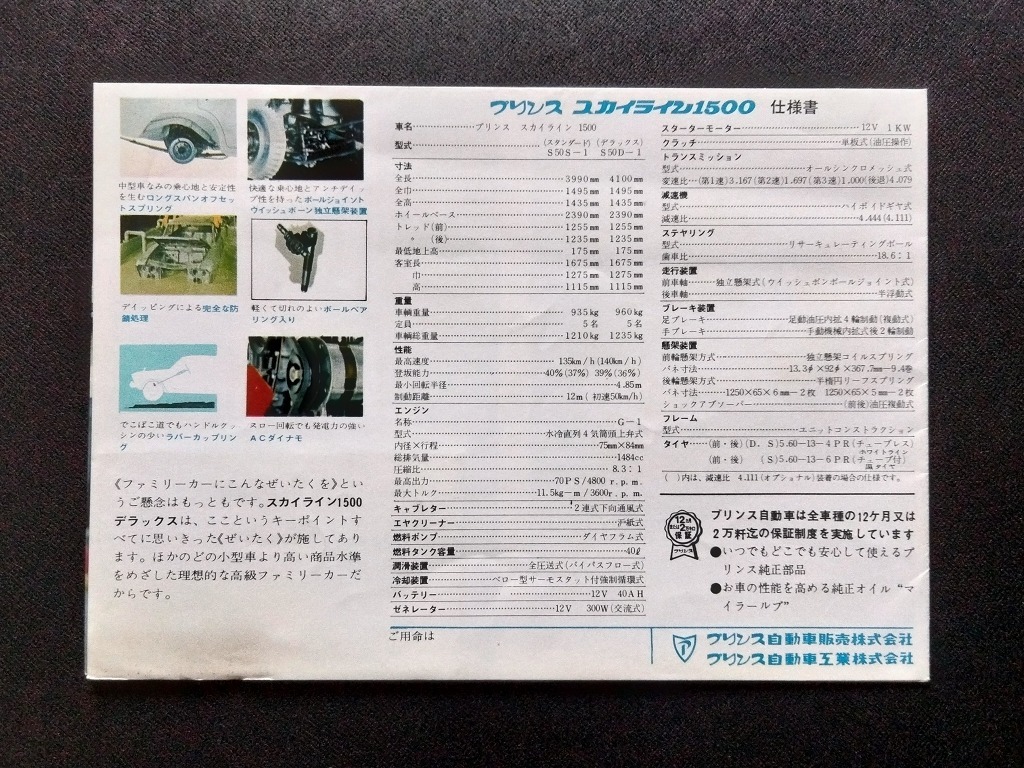 プリンス スカイライン1500 仕様書
中型車なみの乗心地と安定性
を生むロングスパンオフセッ
トスプリング
快適な乗心地とアンチデイッ
プ性を持ったボールジョイント
ウイッシュボーン独立懸架装置
デイッピングによる完全な防
錆処理
軽くて切れのよいボールベア
リング入り
でこぼこ道でもハンドルクッ
ションの少いラバーカップリン
グ
スロー回転でも発電力の強い
ACダイナモ
《ファミリーカーにこんなぜいたくを》とい
うご懸念はもっともです。スカイライン1500
デラックスは、ここというキーポイントす
べてに思いきった《ぜいたく》が施してあ
ります。ほかのどの小型車より高い商品水準
をめざした理想的な高級ファミリーカーだ
からです。
車名 プリンス スカイライン 1500
型式 (スタンダード) S50S-1 (デラックス) S50D-1
寸法
全長 3990mm 4100mm
全巾 1495mm 1495mm
全高 1435mm 1435mm
ホイールベース 2390mm 2390mm
トレッド(前) 1255mm 1255mm
〃 (後) 1235mm 1235mm
最低地上高 175mm 175mm
客室長 1675mm 1675mm
巾 1275mm 1275mm
高 1115mm 1115mm
重量
車輌重量 935kg 960kg
定員 5名 5名
車輌総重量 1210kg 1235kg
性能
最高速度 135km/h(140km/h)
登坂能力 40%(37%) 39%(36%)
最小回転半径 4.85m
制動距離 12m(初速50km/h)
エンジン
名称 G-1
型式 水冷直列4気筒頭上弁式
内径×行程 75mm×84mm
総排気量 1484cc
圧縮比 8.3:1
最高出力 70PS/4800 r.p.m.
最大トルク 11.5kg-m/3600r.p.m.
キャブレター 2連式下向通風式
エヤクリーナー 沪紙式
燃料ポンプ ダイヤフラム式
燃料タンク容量 40ℓ
潤滑装置 全圧送式(バイパスフロー式)
冷却装置 ベロー型サーモスタット付強制循環式
バッテリー 12V 40AH
ゼネレーター 12V 300W(交流式)
スターターモーター 12V 1KW
クラッチ 単板式(油圧操作)
トランスミッション
型式 オールシンクロメッシュ式
変速比 (第1速)3.167(第2速)1.697(第3速)1.000(後退)4.079
減速機
型式 ハイポイドギヤ式
減速比 4.444(4.111)
ステヤリング
型式 リサーキュレーティングボール
歯車比 18.6:1
走行装置
前車軸 独立懸架式(ウイッシュボンボールジョイント式)
後車軸 半浮動式
ブレーキ装置
足ブレーキ 足動油圧内拡4輪制動(複動式)
手ブレーキ 手動機械内拡式後2輪制動
懸架装置
前輪懸架方式 独立懸架コイルスプリング
バネ寸法 13.3φ×92φ×367.7mm-9.4巻
後輪懸架方式 半楕円リーフスプリング
バネ寸法 1250×65×6mm-2枚 1250×65×5mm-2枚
ショックアブソーバー (前後)油圧複動式
フレーム
型式 ユニットコンストラクション
タイヤ (前・後)(D.S)5.60-13-4PR(チューブレス)
ホワイトライン
(前・後) (S)5.60-13-6PR(チューブ付)
( )内は、減速比 4.111(オプショナル)装着の場合の仕様です。
12ヵ月
または2万キロ
保証
プリンス
プリンス自動車は全車種の12ケ月又は
2万粁迄の保証制度を実施しています
●いつでもどこでも安心して使えるプ
リンス純正部品
●お車の性能を高める純正オイル“マ
イラールブ”
ご用命は
プリンス自動車販売株式会社
プリンス自動車工業株式会社